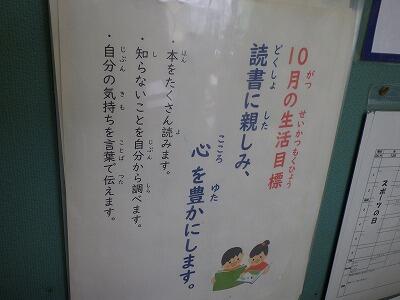 10月の生活目標
読書に親しみ、
心を豊かにします。
・本をたくさん読みます。
・知らないことを自分から調べます。
・自分の気持ちを言葉で伝えます。
スポーツの日